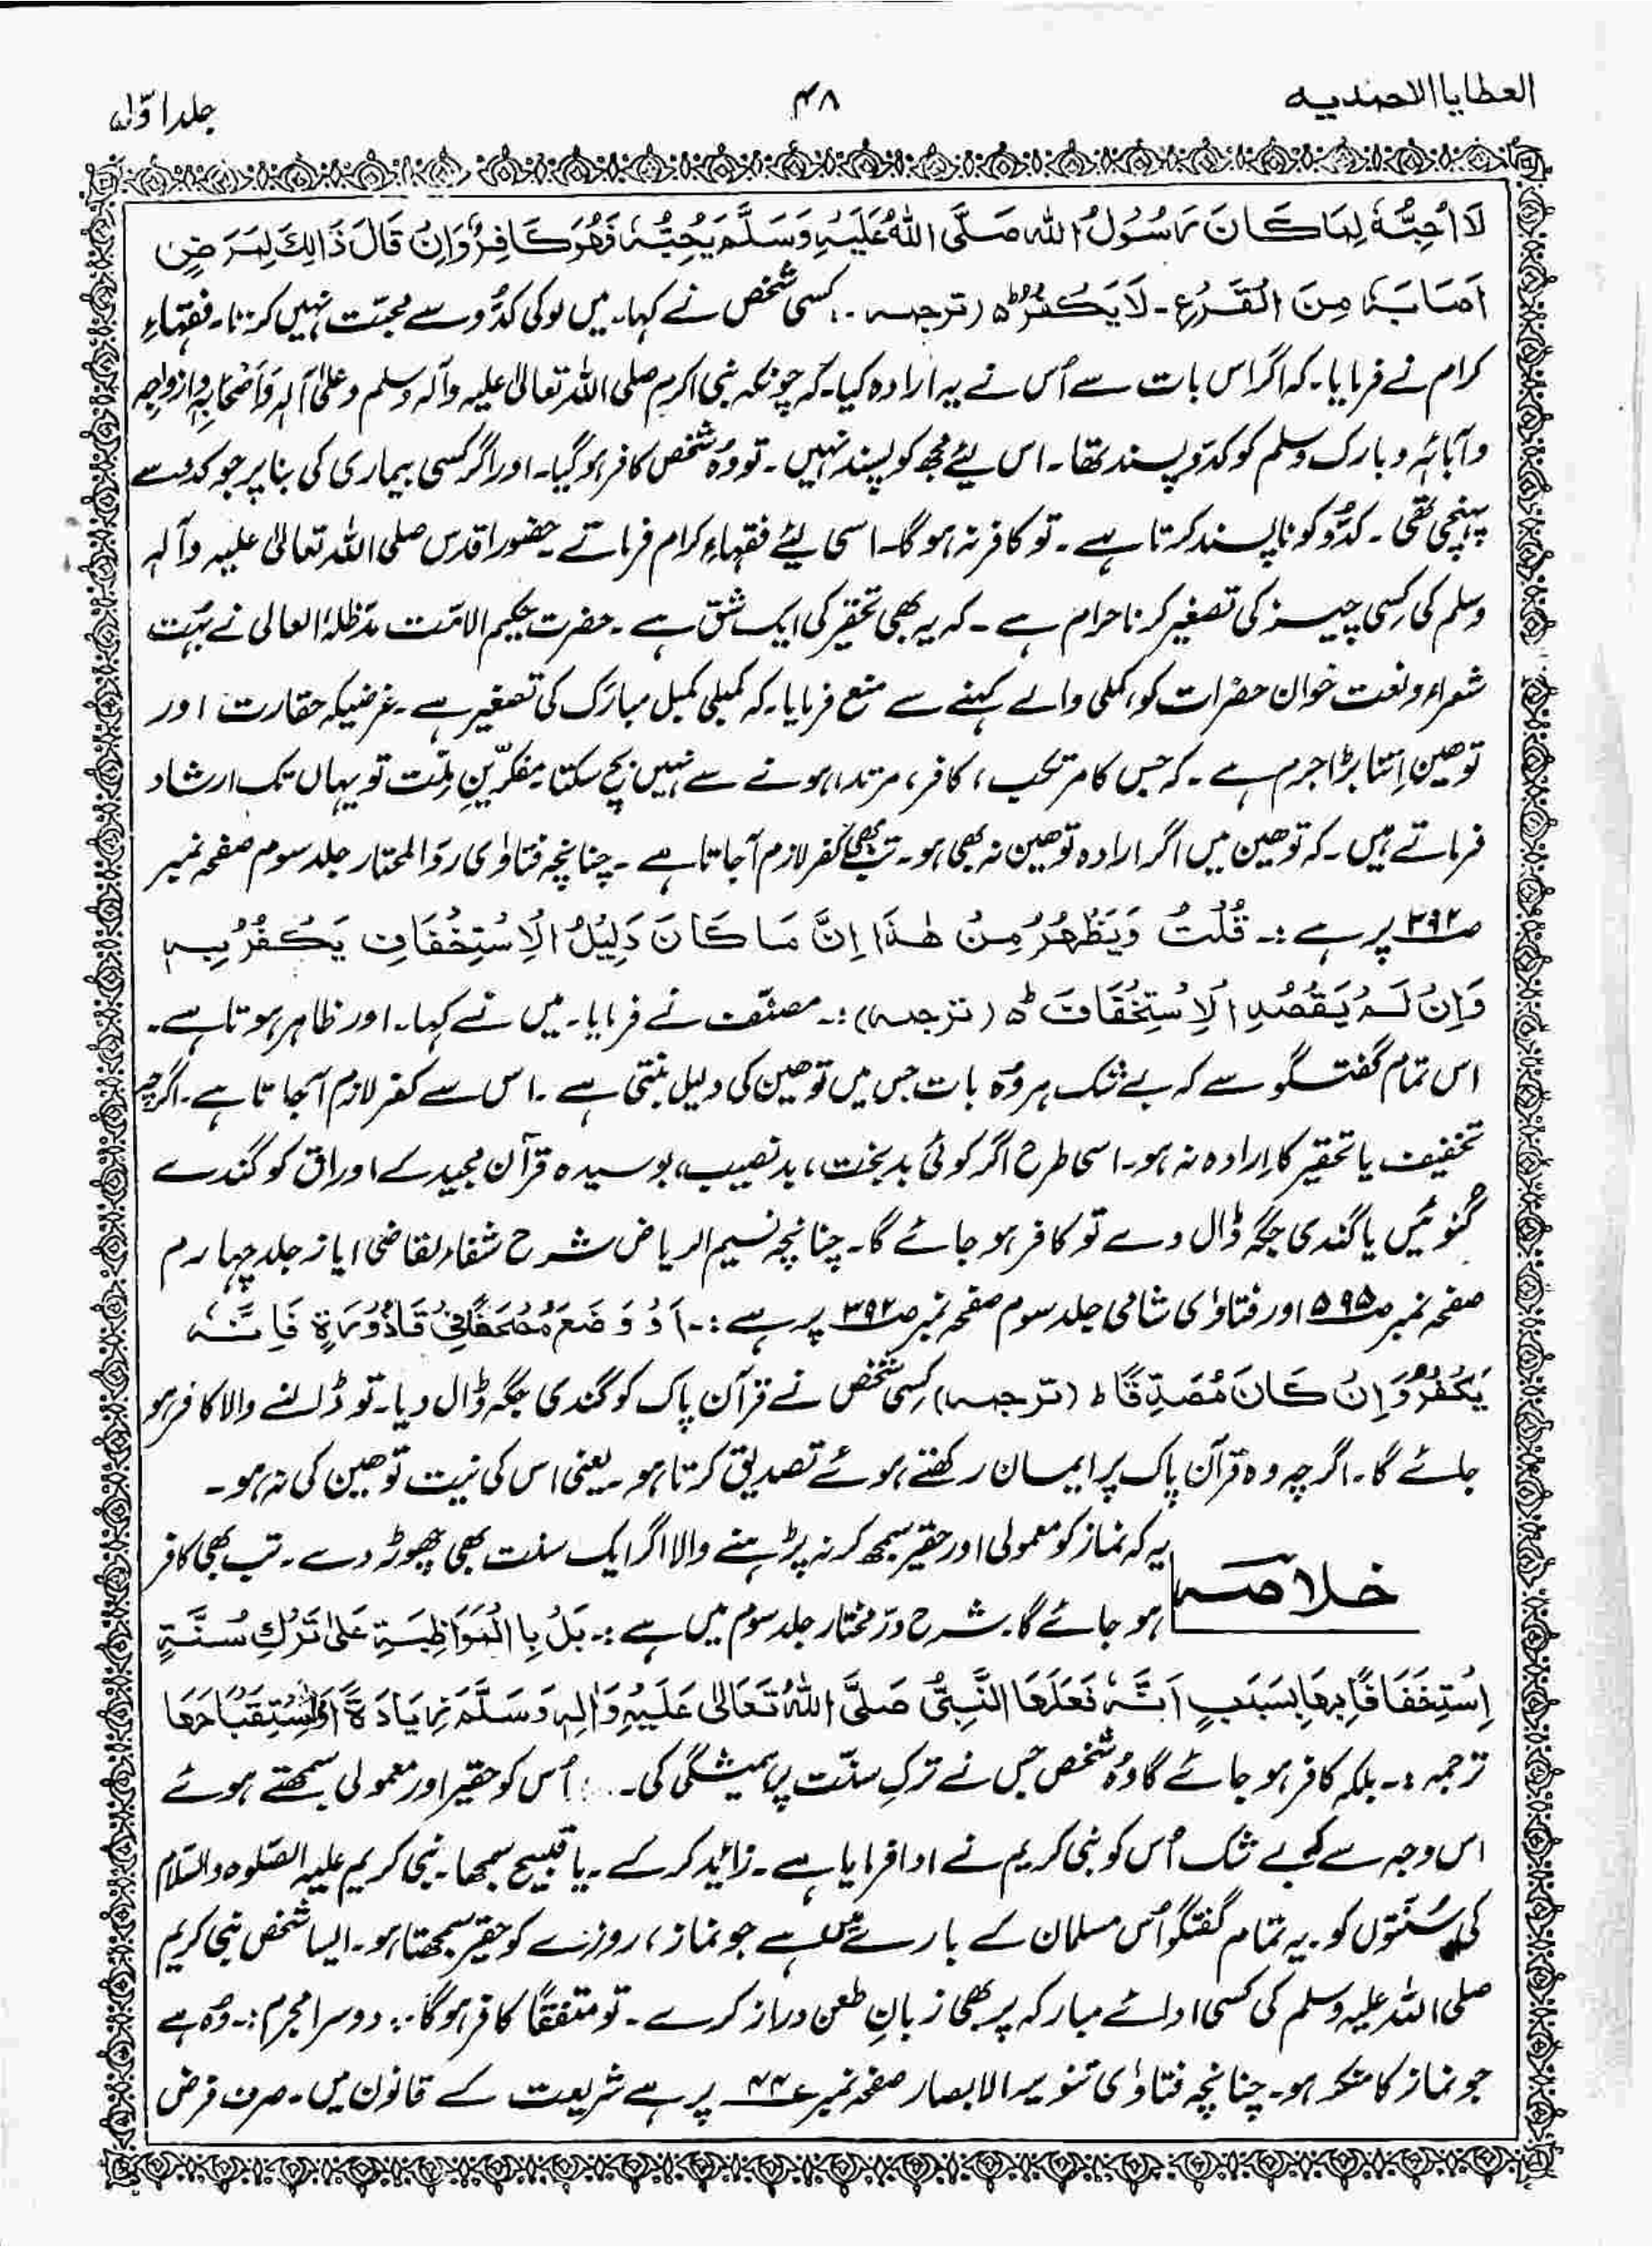 العطایا الاحمدیہ
۴۸
جلد اوّل
لَا اُحِبُّہٗ لِمَا کَانَ رَسُوْلُ اللہ صَلَّی اللہُ عَلَیْہِ وَسَلَّمَ یُحِبُّہٗ فَھُوَ کَافِرٌ وَاِنْ قَالَ ذَالِکَ لِمَرَضٍ
اَصَابَہٗ مِنَ الْقَرْعِ۔ لَا یَکْفُرُ ہ (ترجمہ۔: کسی شخص نے کہا۔ میں لوکی کدّو سے محبّت نہیں کرتا۔ فقہاءِ
کرام نے فرمایا۔ کہ اگر اس بات سے اُس نے یہ ارادہ کیا۔ کہ چونکہ نبی اکرم صلی اللہ تعالیٰ علیہ وآلہ وسلم وعلیٰ آلہٖ وَاَصْحَابِہٖ وازواجِہٖ
وآبائہٖ وبارک وسلم کو کدّو پسند تھا۔ اس لیئے مجھ کو پسند نہیں۔ تو وہُ شخص کافر ہوگیا۔ اور اگر کسی بیماری کی بنا پر جو کدو سے
پہنچی تھی۔ کدُّو کو ناپسند کرتا ہے۔ تو کافر نہ ہوگا۔ اسی لیئے فقہاءِ کرام فرماتے حضور اقدس صلی اللہ تعالیٰ علیہ وآلہ
وسلم کی کِسی چیز کی تصغیر کرنا حرام ہے۔ کہ یہ بھی تحقیر کی ایک شق ہے۔ حضرت حکیم الامّت مدّظلہٗ العالی نے بہُت
شعراء و نعت خوان حضرات کو، کملی والے کہنے سے منع فرمایا۔ کہ کملی کمبل مبارک کی تصغیر ہے۔ غرضیکہ حقارت اور
توھین اِتنا بڑا جرم ہے۔ کہ جس کا مرتکب، کافر، مرتد، ہونے سے نہیں بچ سکتا۔ مفکّرینِ مِلّت تو یہاں تک ارشاد
فرماتے ہیں۔ کہ توھین میں اگر ارادہ توھین نہ بھی ہو۔ تب بھی کفر لازم آجاتا ہے۔ چنانچہ فتاوٰی ردّ المحتار جلد سوم صفحہ نمبر
صـ۳۹۲ پر ہے :۔ قُلْتُ وَیَظْھَرُ مِنْ ھٰذَا اِنَّ مَا کَانَ دَلِیْلُ الْاِسْتِخْفَافِ یَکْفُرُ بِہٖ
وَاِنْ لَمْ یَقْصُدِ الْاِسْتِخْفَافَ ط ہ (ترجمہ) :۔ مصنّف نے فرمایا۔ میں نے کہا۔ اور ظاہر ہوتا ہے۔
اس تمام گفتگو سے کہ بے شک ہر وہُ بات جس میں توھین کی دلیل بنتی ہے۔ اس سے کفر لازم آجاتا ہے۔ اگرچہ
تخفیف یا تحقیر کا اِرادہ نہ ہو۔ اسی طرح اگر کوئی بدبخت، بدنصیب، بوسیدہ قرآن مجید کے اوراق کو گندے
کُنوئیں یا گندی جگہ ڈال دے تو کافر ہو جائے گا۔ چنانچہ نسیم الریاض شرح شفاء لقاضی ایاز جلد چہارم
صفحہ نمبر صـ۵۹۵ اور فتاوٰی شامی جلد سوم صفحہ نمبر صـ۳۹۲ پر ہے :۔ اَوْ وَضَعَ مُصْحَفًا فِیْ قَاذُوْرَۃٍ فَاِنَّہٗ
یَکْفُرُ وَاِنْ کَانَ مُصَدِّقًا ط (ترجمہ) کِسی شخص نے قرآن پاک کو گندی جگہ ڈال دیا۔ تو ڈالنے والا کافر ہو
جائے گا۔ اگرچہ وہ قرآن پاک پر ایمان رکھتے ہوئے تصدیق کرتا ہو۔ یعنی اس کی نیت توھین کی نہ ہو۔
خلاصہ
یہ کہ نماز کو معمولی اور حقیر سمجھ کر نہ پڑہنے والا اگر ایک سنت بھی چھوڑ دے۔ تب بھی کافر
ہو جائے گا۔ شرح درّ مختار جلد سوم میں ہے :۔ بَلْ بِالْمُوَاظِبَۃِ عَلیٰ تَرْکِ سُنَّۃٍ
اِسْتِخْفَافًا بِھَا بِسَبَبِ اَنَّہٗ فَعَلَھَا النَّبِیُّ صَلَّی اللہُ تَعَالیٰ عَلَیْہِ وَاٰلِہٖ وَسَلَّمَ زِیَادَۃً اَوْ اِسْتِقْبَاحَھَا
ترجمہ :۔ بلکہ کافر ہو جائے گا وہُ شخص جس نے ترکِ سنّت پر ہمیشگی کی۔ اُس کو حقیر اور معمولی سمجھتے ہوئے
اس وجہ سے کہ بے شک اُس کو نبی کریم نے ادا فرمایا ہے۔ زائد کر کے۔ یا قبیح سمجھا۔ نبی کریم علیہ الصّلوٰہ والسّلام
کی سُنّتوں کو۔ یہ تمام گفتگو اُس مسلمان کے بارے میں ہے جو نماز، روزے کو حقیر سمجھتا ہو۔ ایسا شخص نبی کریم
صلی اللہ علیہ وسلم کی کسی ادائے مبارکہ پر بھی زبانِ طعن دراز کرے۔ تو متفقًا کافر ہوگا۔: دوسرا مجرم :۔ وہُ ہے
جو نماز کا منکر ہو۔ چنانچہ فتاوٰی تنویر الابصار صفحہ نمبر پر ہے شریعت کے قانون میں۔ صرف فرض